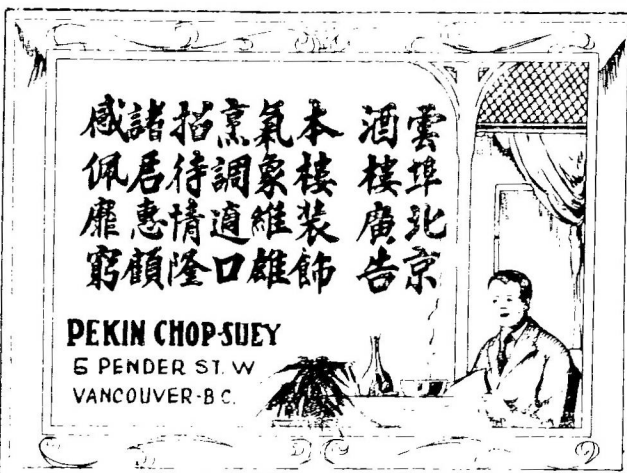 雲埠北京
酒樓廣告
本樓裝飾
氣象維雄
烹調適口
招待情隆
諸君惠顧
感佩靡窮
PEKIN CHOP-SUEY
5 PENDER ST. W
VANCOUVER-B.C.